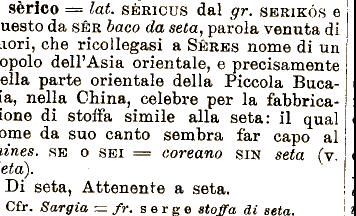 sèrico = lat. SÈRICUS dal gr. SERIKÓS e
uesto da SÊR baco da seta, parola venuta di
uori, che ricollegasi a SÈRES nome di un
opolo dell'Asia orientale, e precisamente
ella parte orientale della Piccola Buca-
ía, nella China, celebre per la fabbrica-
ione di stoffa simile alla seta: il qual
ome da suo canto sembra far capo al
hines. SE o SEI = coreano SIN seta (v.
eta).
Di seta, Attenente a seta.
Cfr. Sargia = fr. serge stoffa di seta.